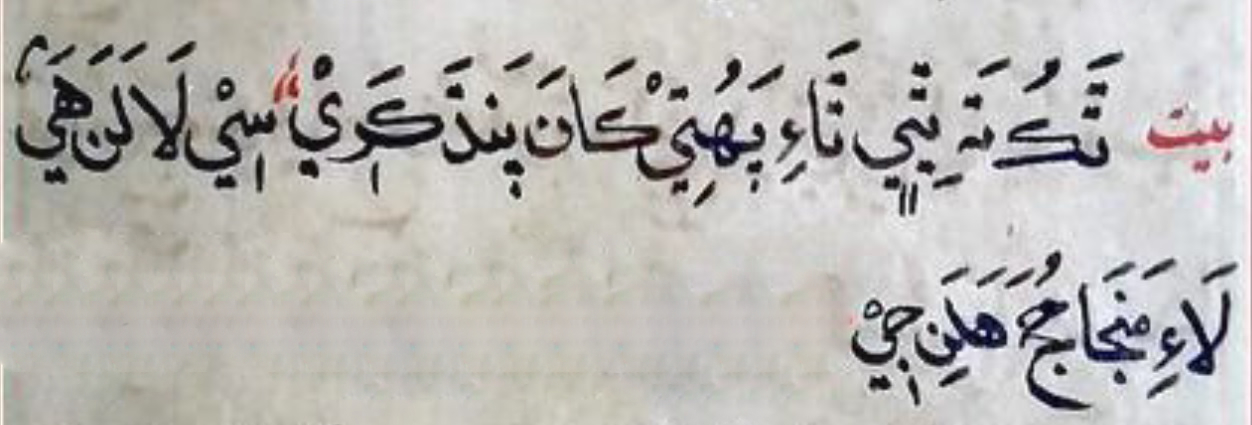 بيت تَكُ تَہِ تِيِي تَاءِ پَهُتِيْ كَانَ پَنڌَ كَرِيْ سِيْ لَالَنَ هَيَ
لَاءِ مَنجَا جُ هَلَنِ جِيْ